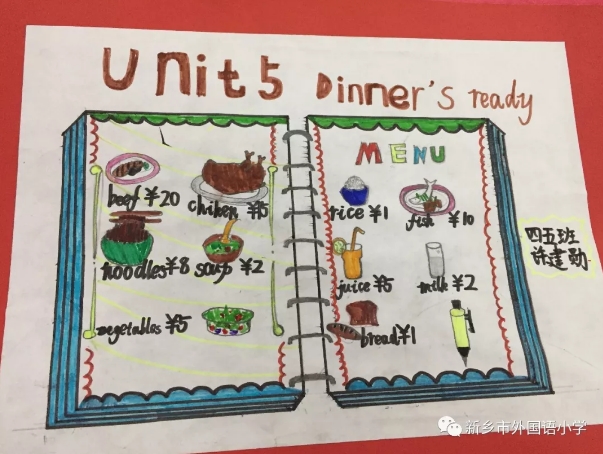 Unit 5 Dinner's ready
MENU
beef ¥20
chiken ¥15
noodles ¥8
soup ¥2
vegetables ¥5
rice ¥1
fish ¥10
juice ¥5
milk ¥2
bread ¥1
四五班
许建勋
新乡市外国语小学